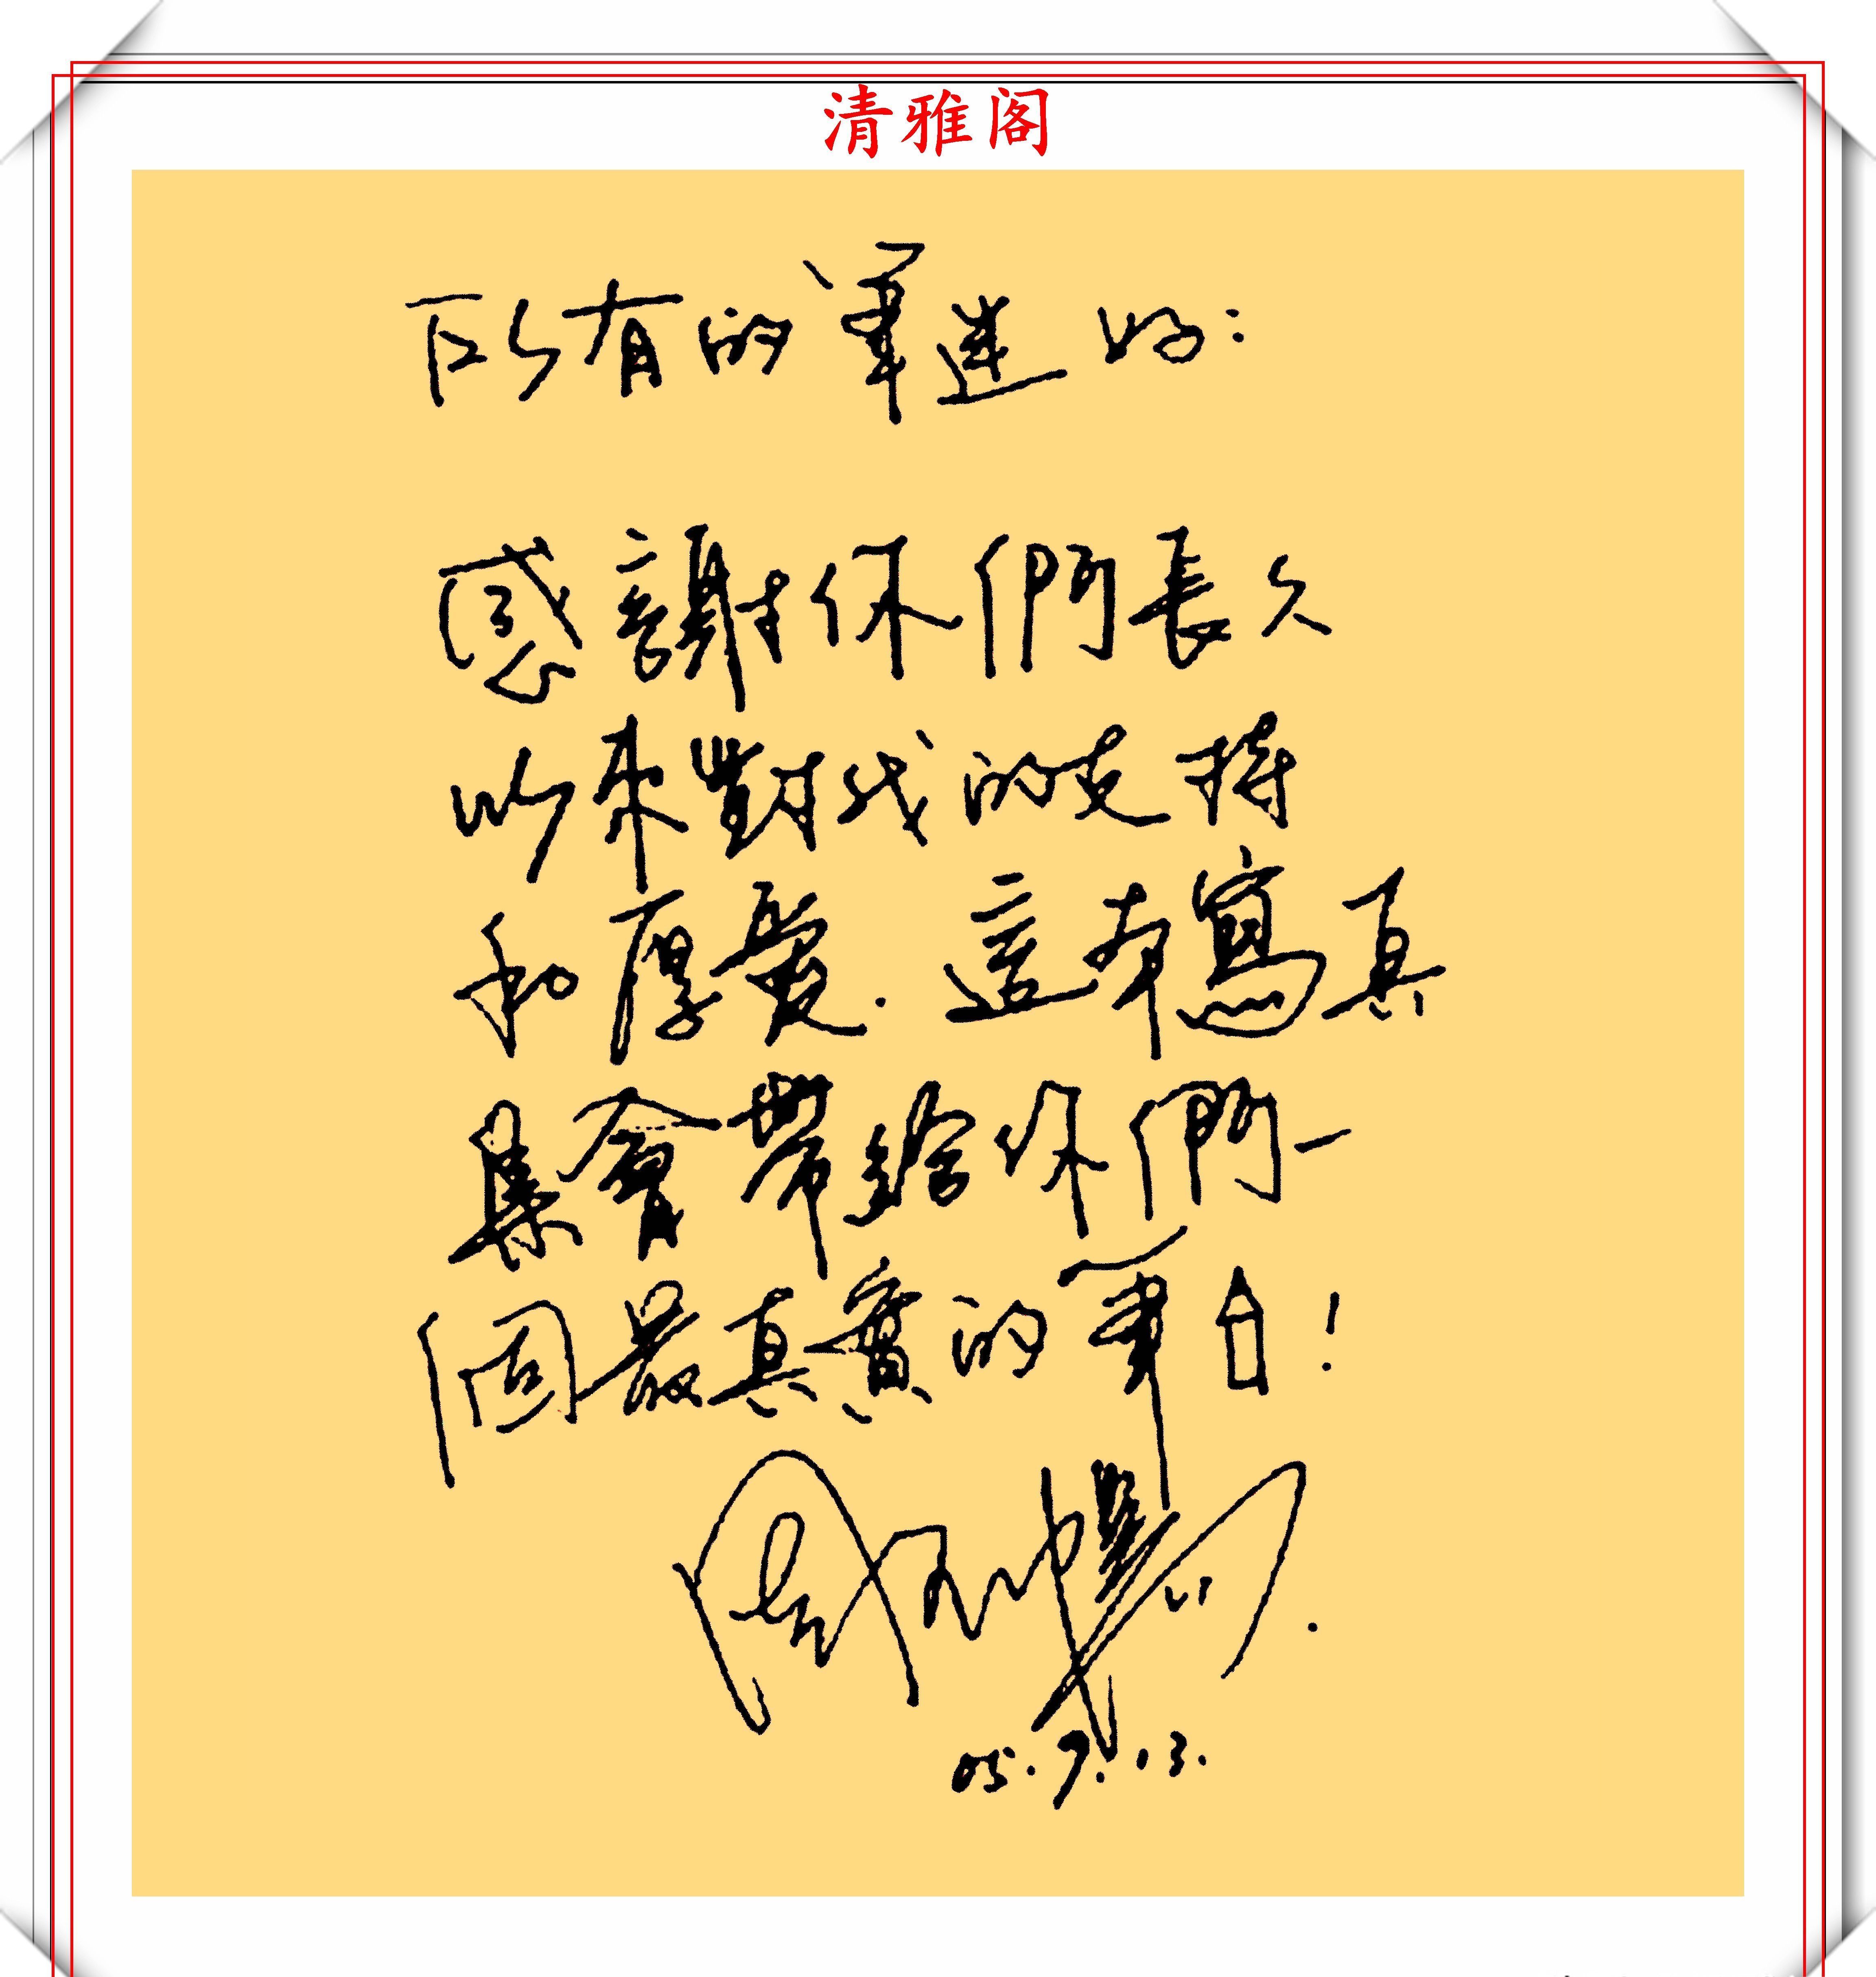 清雅阁
所有的軍迷好：
感謝你們長久
以來對我的支持
和厚愛.這本寫真
集會帶給你們一
個最真實的軍！
05.9.13.